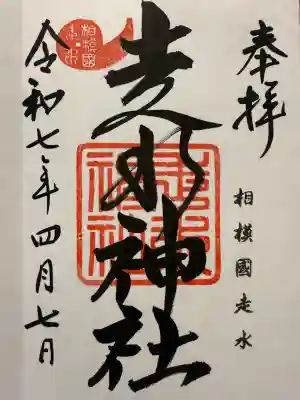 奉拝
相模國走水
走水神社
相模國
走水
令和七年四月七日